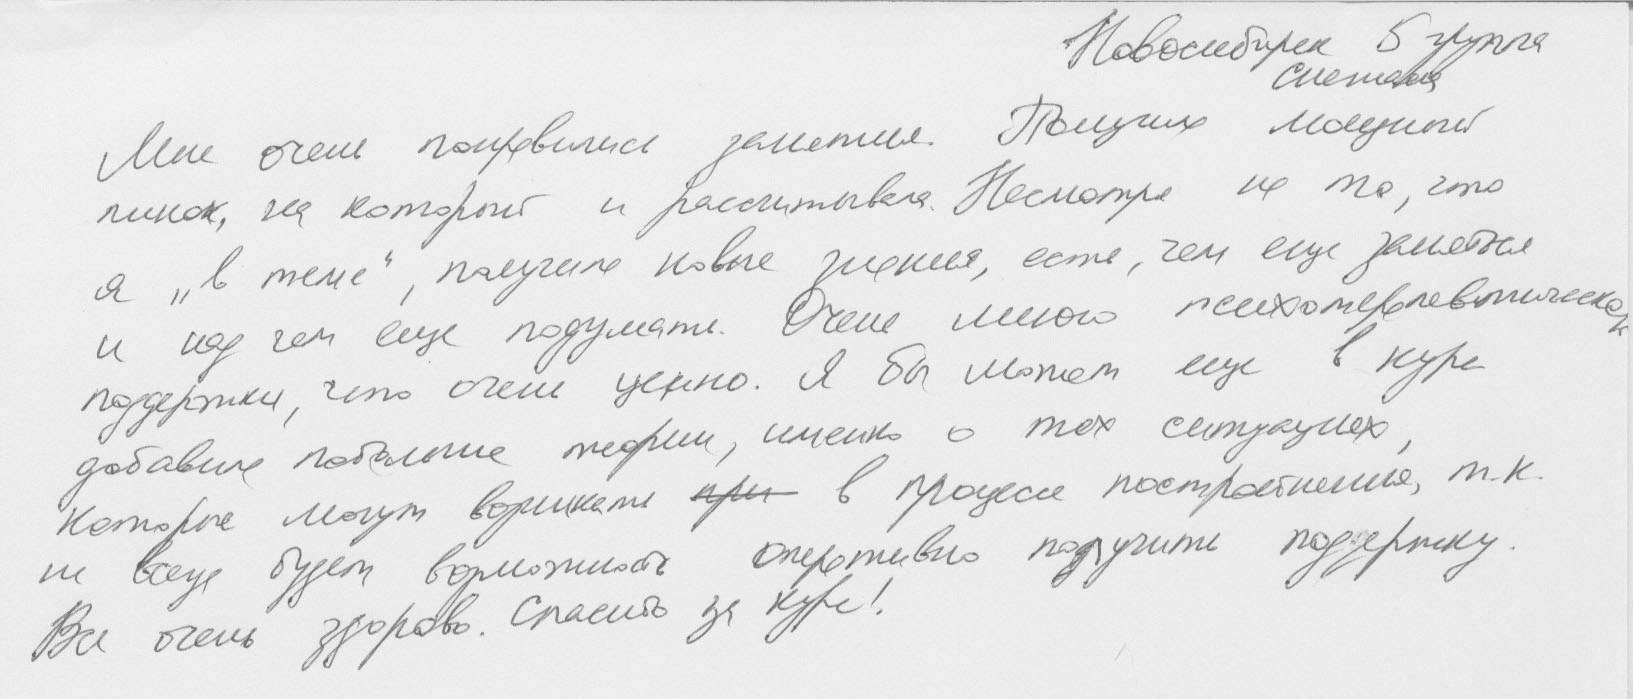 Новосибирск 5 группа
Светлана
Мне очень понравились занятия. Получила мощный
пинок, на который и рассчитывала. Несмотря на то, что
я „в теме“, получила новые знания, есть, чем еще заняться
и над чем еще подумать. Очень много психотерапевтической
поддержки, что очень ценно. Я бы может еще в курс
добавила побольше теории, именно о тех ситуациях,
которые могут возникать при в процессе построения, т.к.
не всегда будет возможность оперативно получить поддержку.
Все очень здорово. Спасибо за курс!